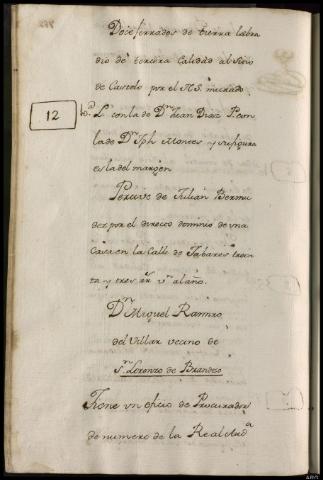 Doce ferrados de tierra labra
dio de tercera Calidad al sitio
de Castelo por el N.
12
L. con la de Dn Juan Diaz P. con
la de Dn Jph Montes y su figura
es la del margen
Percive de Julian Bermu
dez por el directo dominio de una
Casa en la Calle de Tabares trein
ta y tres rr. vn al año.
Dn Miguel Ramiro
del Villar vecino de
Sn Lorenzo de Brandeso
Tiene un oficio de Procurador
de numero de la Real Auda